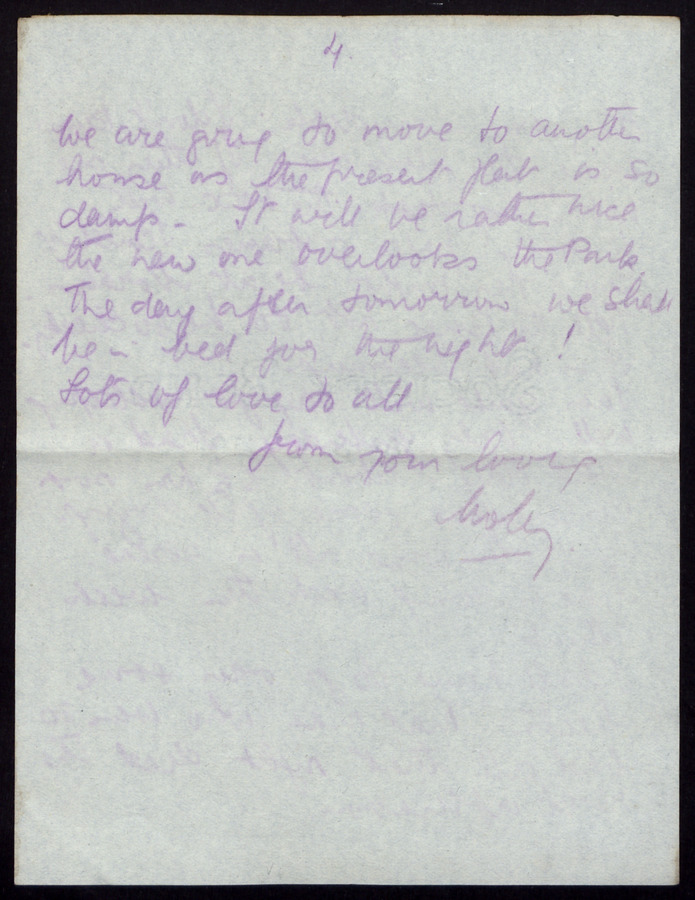 4.
We are going to move to another
house as the present flat is so
damp - It will be rather nice
the new one overlooks the Park
The day after tomorrow we shall
be in bed for the night!
Lots of love to all
from your loving